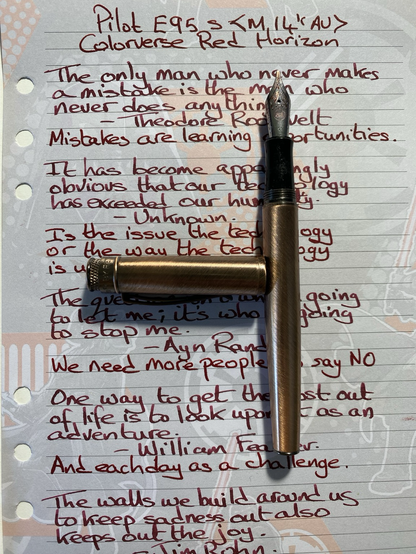 Pilot E95 s <M, 14k AU>
Colorverse Red Horizon
The only man who never makes
a mistake is the man who
never does anything
— Theodore Roosevelt
Mistakes are learning opportunities.
It has become appallingly
obvious that our technology
has exceeded our humanity.
— Unknown.
Is the issue the technology
or the way the technology
is u
The question going
to let me; it's who going
to stop me.
— Ayn Rand
We need more people say NO
One way to get the most out
of life is to look upon it as an
adventure.
— William Fea
And each day as a challenge.
The walls we build around us
to keep sadness out also
keeps out the joy.
— Jim Rohn